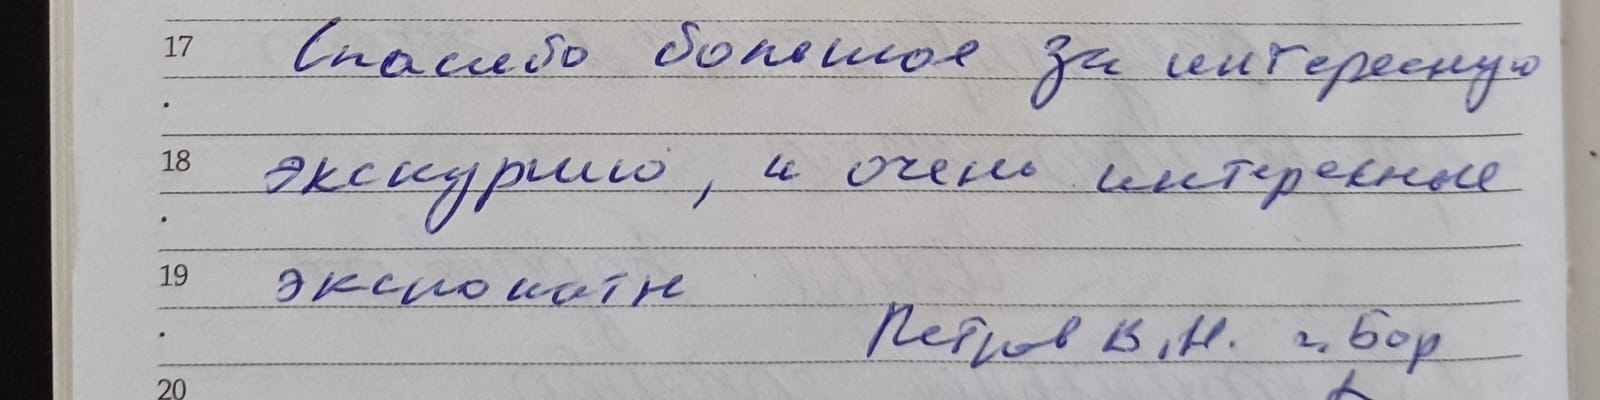 17 Спасибо большое за интересную
18 экскурсию, и очень интересные
19 экспонаты
Петров В.Н. г. Бор
20